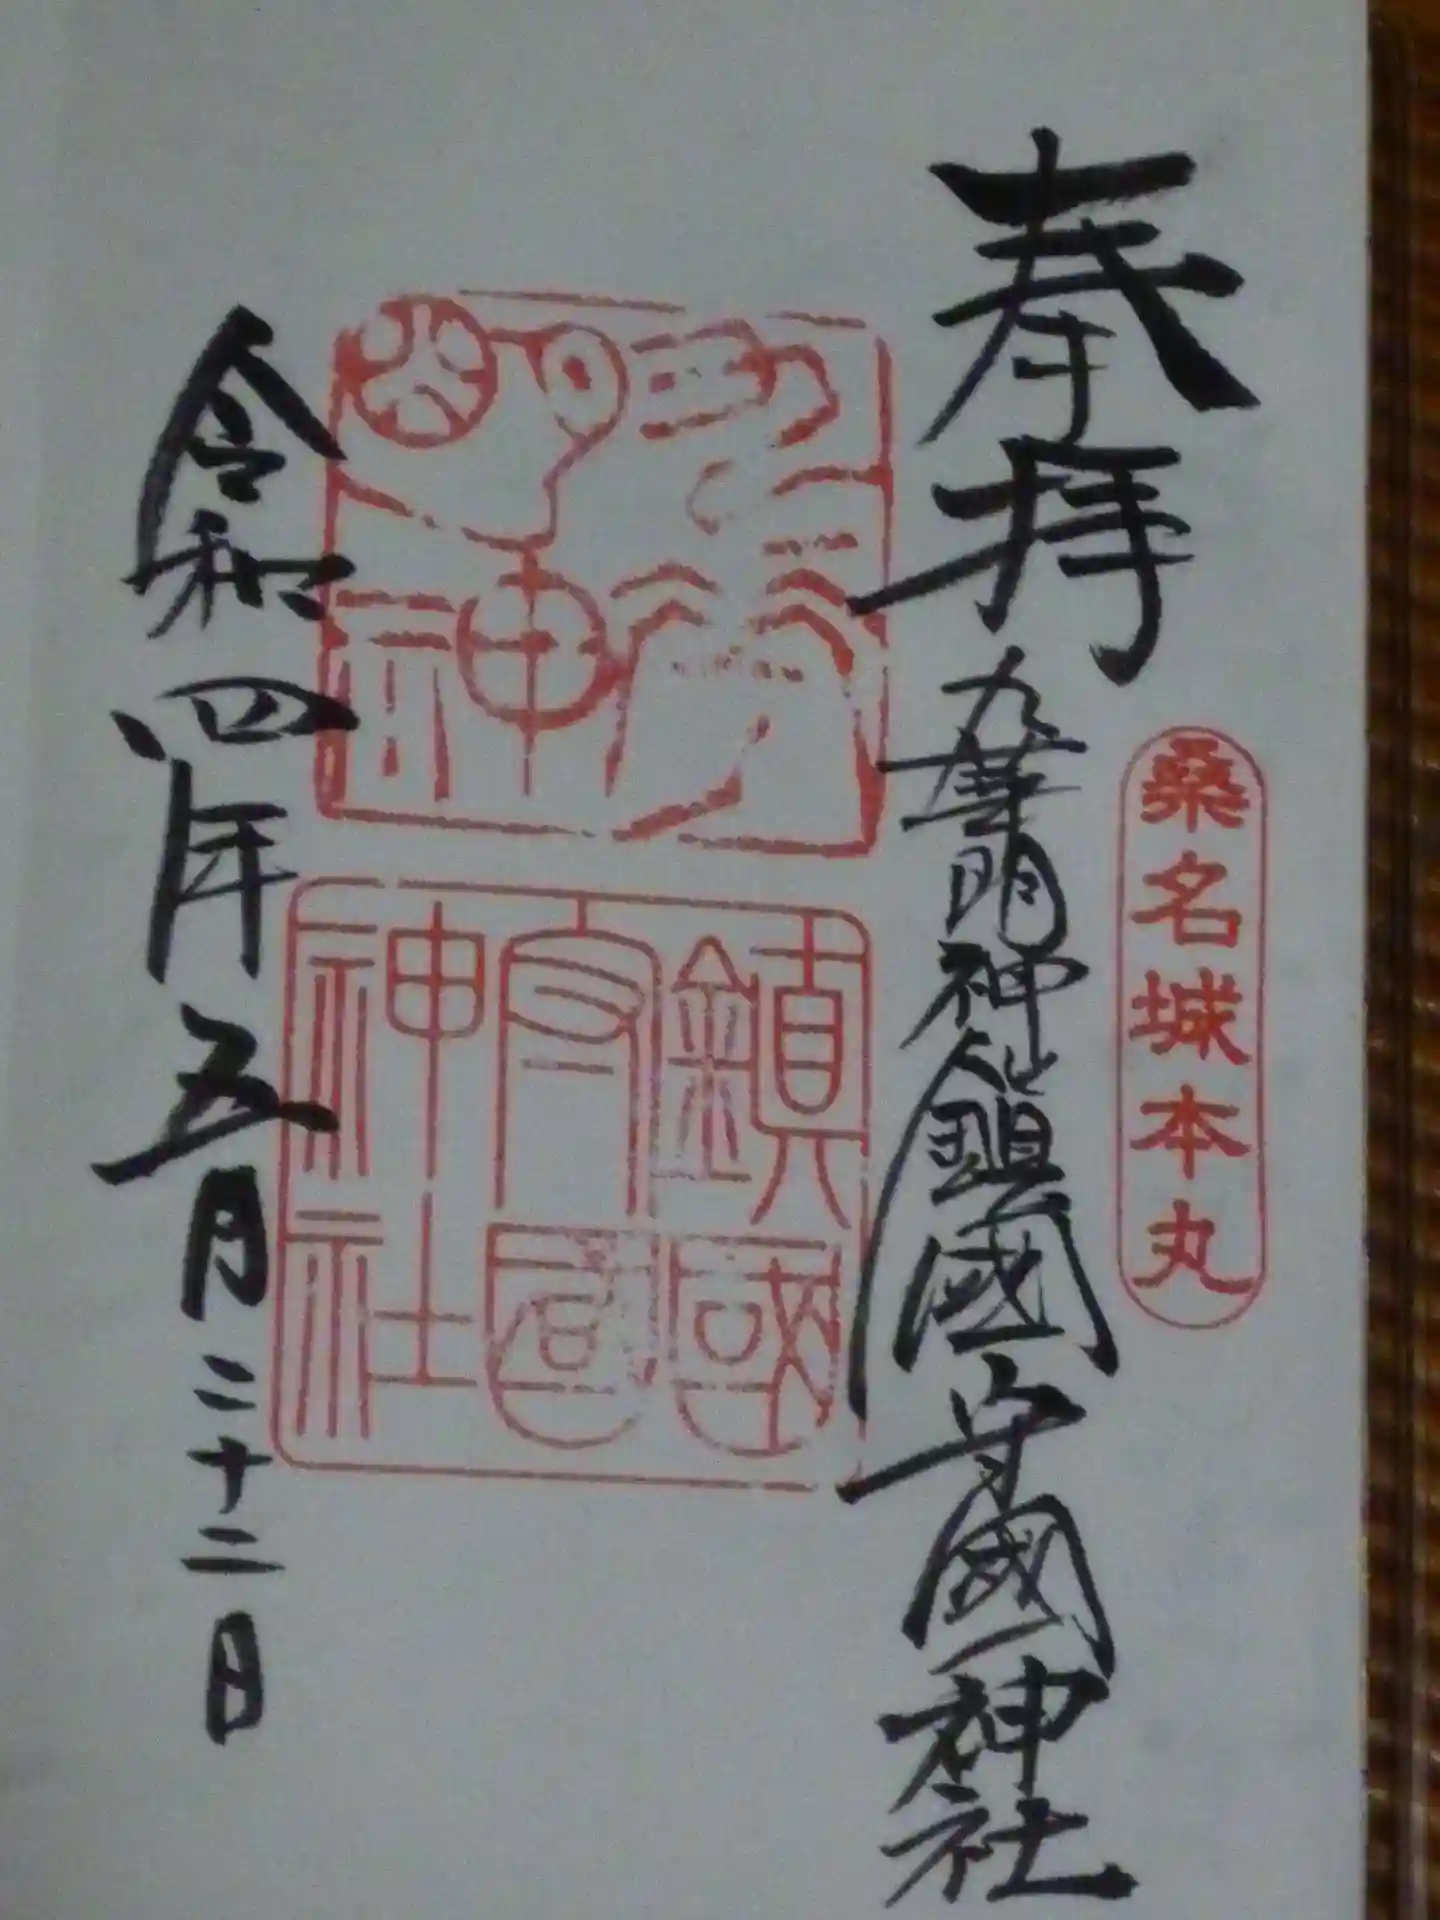 奉拝
桑名城本丸
九華明神仙鎮國守國神社
鎮國
守國
神社
令和四年五月二十二日